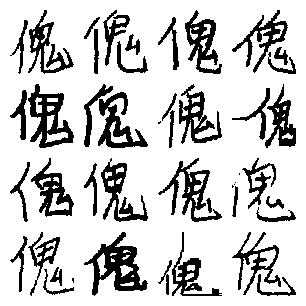 傀傀傀傀
傀傀傀傀
傀傀傀傀
傀傀傀傀